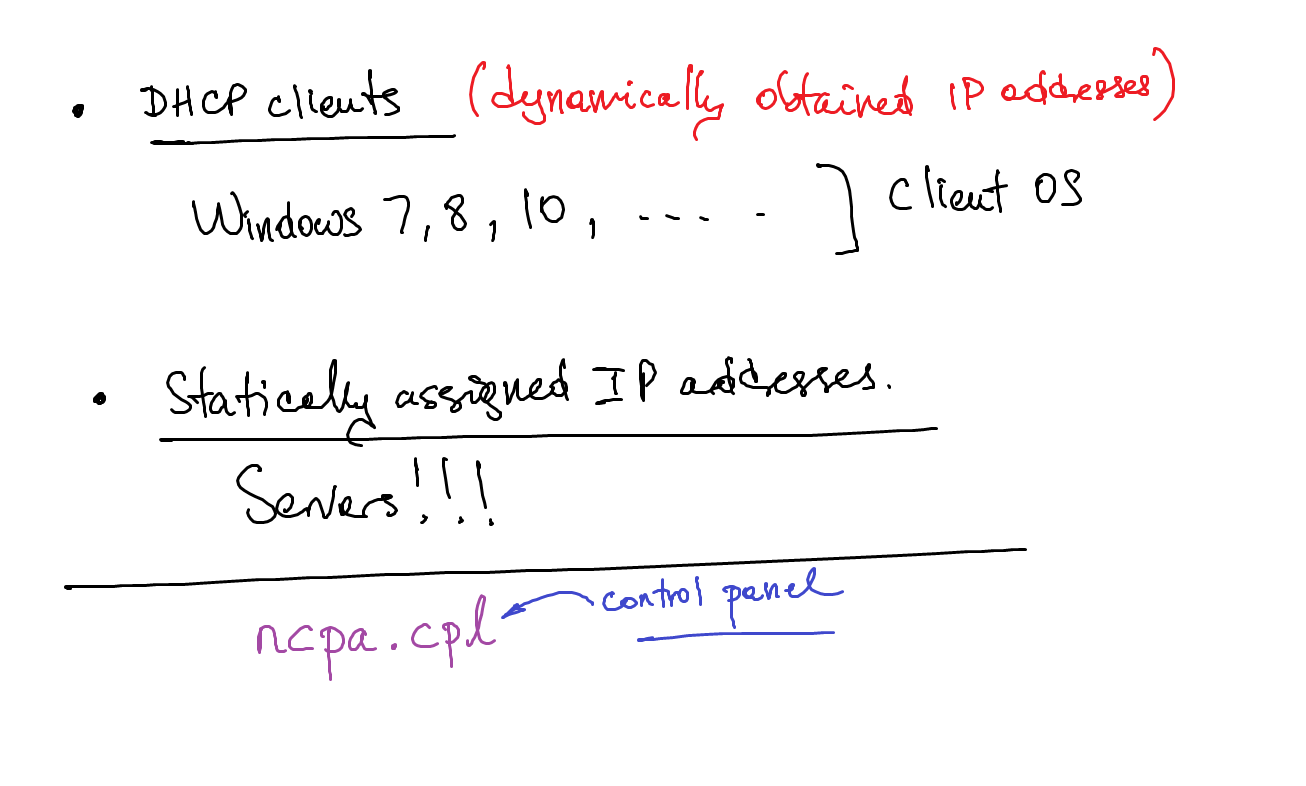 • DHCP clients (dynamically obtained IP addresses)
Windows 7, 8, 10, ---- - ] client OS
• Statically assigned IP addesses.
Servers!!!
ncpa.cpl control panel